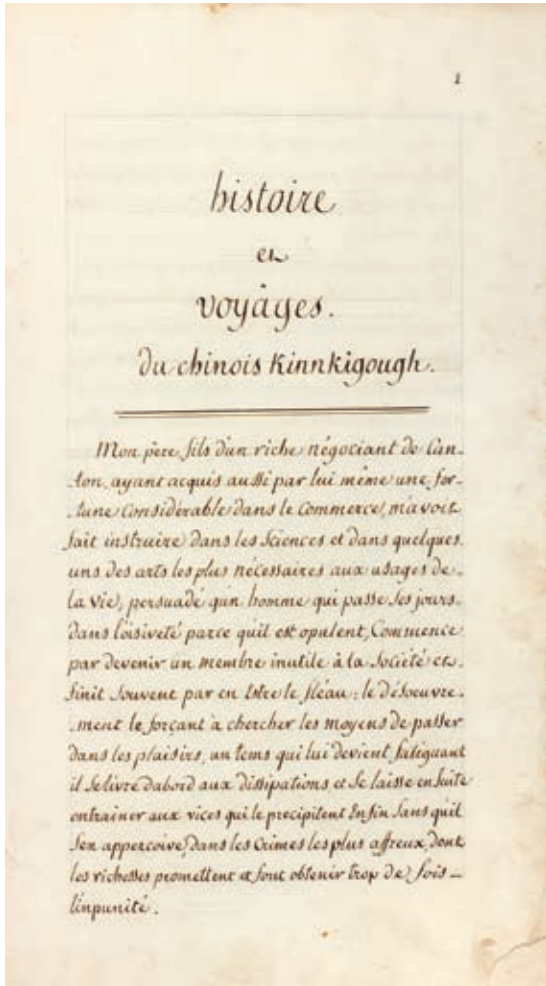 1
histoire
et
voyâges.
du chinois Kinnkigough.
Mon père fils d'un riche négociant de Can-
-ton, ayant acquis aussi par lui même une for-
-tune Considérable dans le Commerce, m'avoit
fait instruire dans les Sciences et dans quelques
uns des arts les plus nécessaires aux usages de
la vie, persuadé qu'un homme qui passe ses jours
dans l'oisiveté parce qu'il est opulent, Commence
par devenir un membre inutile à la Société et
finit Souvent par en Estre le fléau: le désoeuvre-
-ment le forçant à chercher les moyens de passer
dans les plaisirs, un tems qui lui devient fatiguant
il se livre dabord aux dissipations et se laisse ensuite
entrainer aux vices qui le precipitent Enfin Sans quil
S'en apperçoive, dans les Crimes les plus affreux, dont
les richesses promettent et font obtenir trop de fois
l'inpunité.